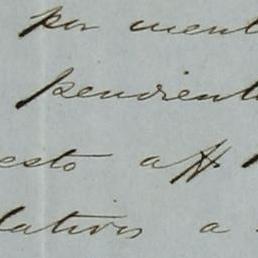 por ment
pendient
esto a
lativos a